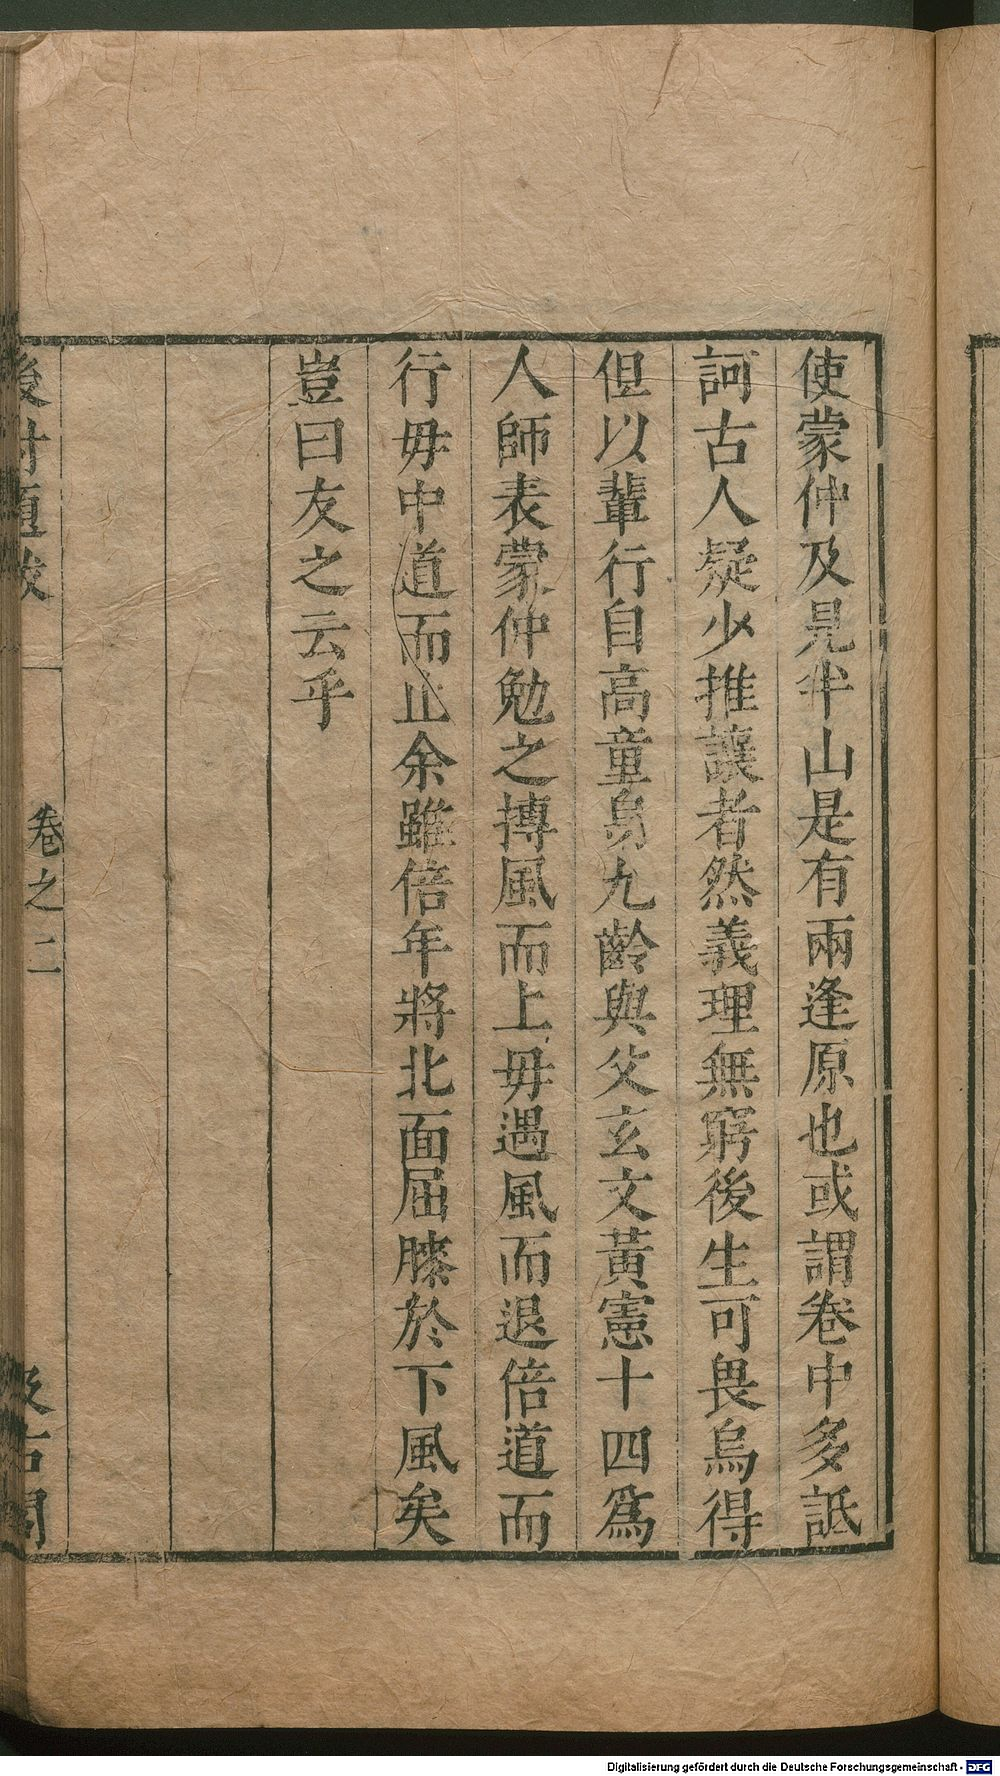 使蒙仲及見半山是有兩逢原也或謂卷中多詆
訶古人疑少推讓者然義理無窮後生可畏烏得
但以輩行自高童烏九齡與父玄文黃憲十四為
人師表蒙仲勉之摶風而上毋遇風而退倍道而
行毋中道而止余雖倍年將北面屈膝於下風矣
豈曰友之云乎
後村題跋
卷之二
汲古閣
Digitalisierung gefördert durch die Deutsche Forschungsgemeinschaft - DFG